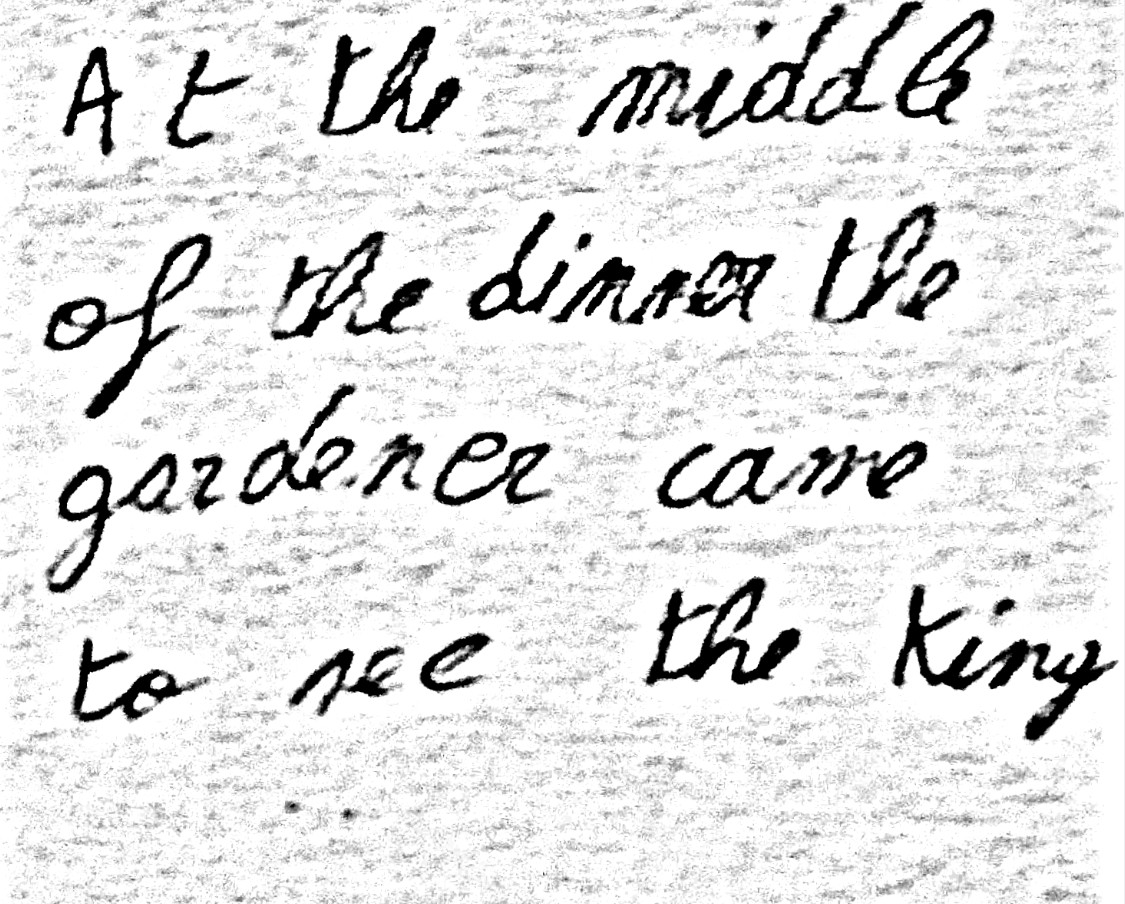 At the middle
of the dinner the
gardener came
to see the King